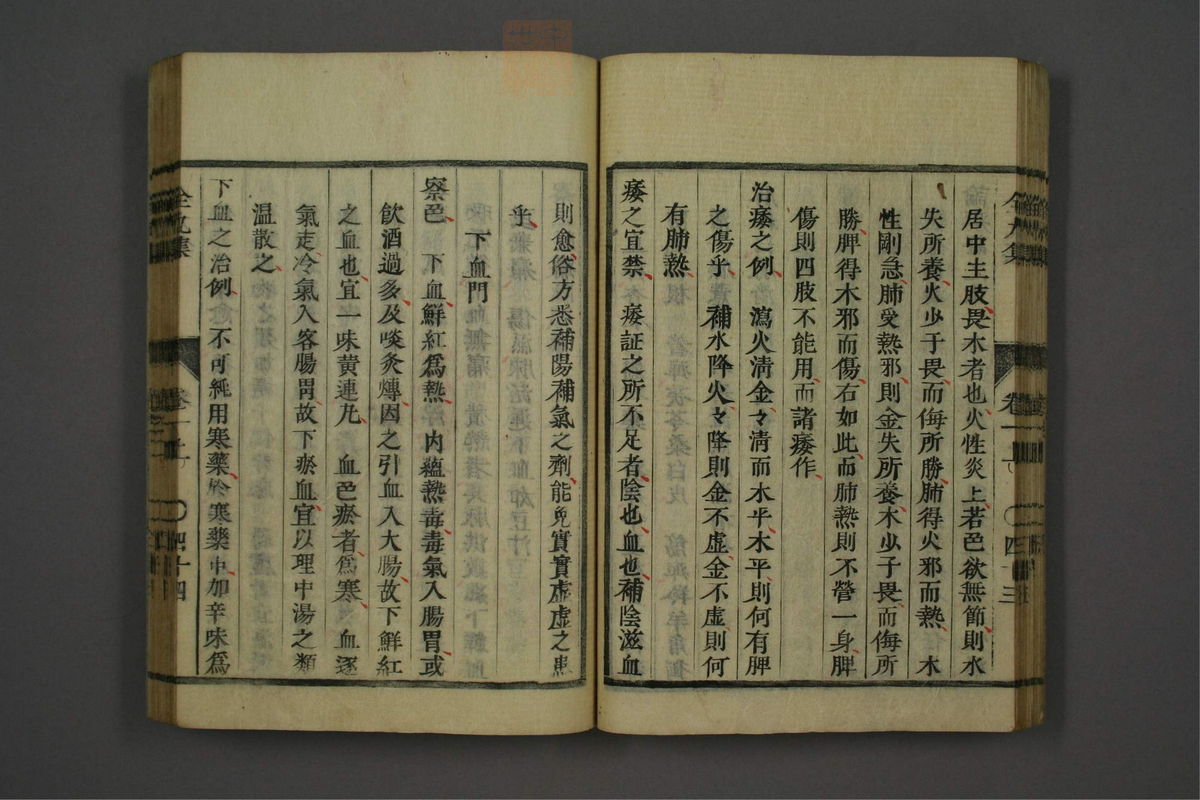 居中主肢畏木者也火性炎上若色欲無節則水
失所養火少于畏而侮所勝肺得火邪而熱木
性剛急肺受熱邪則金失所養木少于畏而侮所
勝脾得木邪而傷右如此而肺熱則不營一身脾
傷則四肢不能用而諸痿作
治痿之例 瀉火淸金々淸而木平木平則何有脾
之傷乎 補水降火々降則金不虛金不虛則何
有肺熱
痿之宜禁 痿証之所不足者陰也血也補陰滋血
卷 四十三
則愈俗方悉補陽補氣之劑能免實實虛虛之患
乎
下血門
察色 下血鮮紅爲熱 內蘊熱毒毒氣入腸胃或
飲酒過多及啖炙煿因之引血入大腸故下鮮紅
之血也宜一味黃連丸 血色瘀者爲寒 血逐
氣走冷氣入客腸胃故下瘀血宜以理中湯之類
溫散之
下血之治例 不可純用寒藥於寒藥中加辛味爲
全九集
卷 四十四